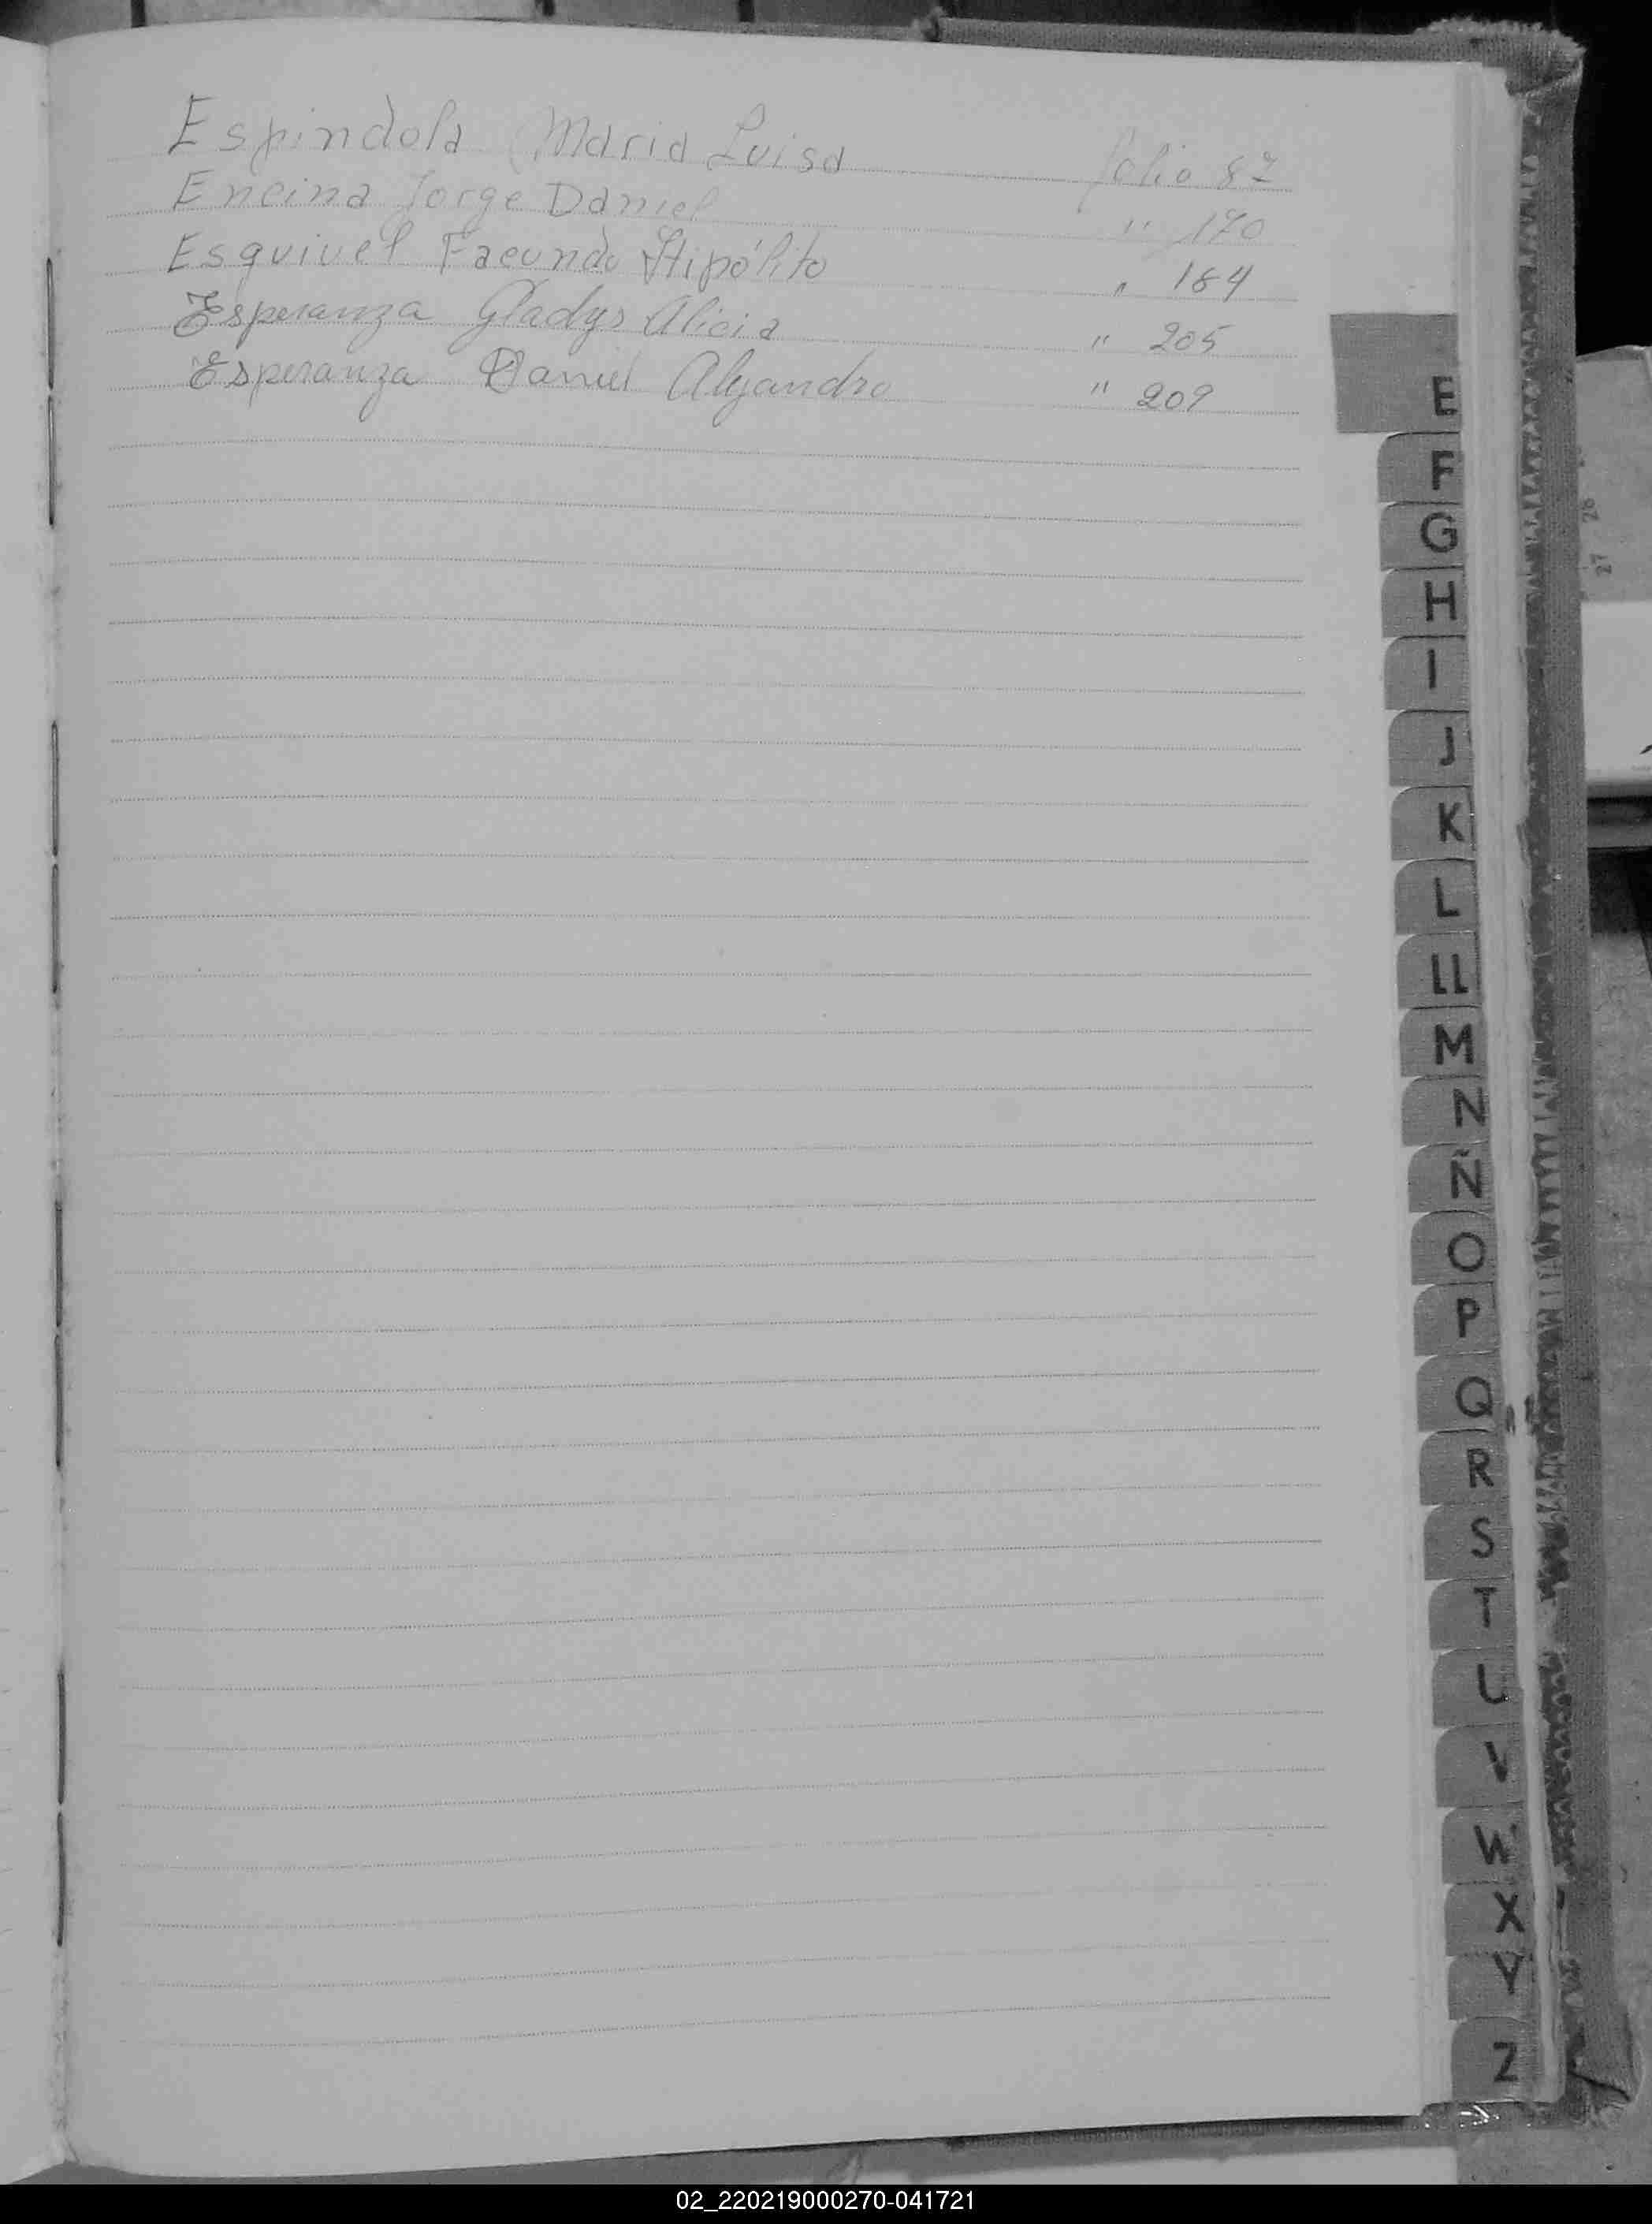 Espindola Maria Luisa folio 87
Encina Jorge Daniel " 170
Esquivel Facundo Hipólito " 184
Esperanza Gladys Alicia " 205
Esperanza Daniel Alejandro " 209
E
F
G
H
I
J
K
L
LL
M
N
Ñ
O
P
Q
R
S
T
U
V
W
X
Y
Z
26
27
02_220219000270-041721